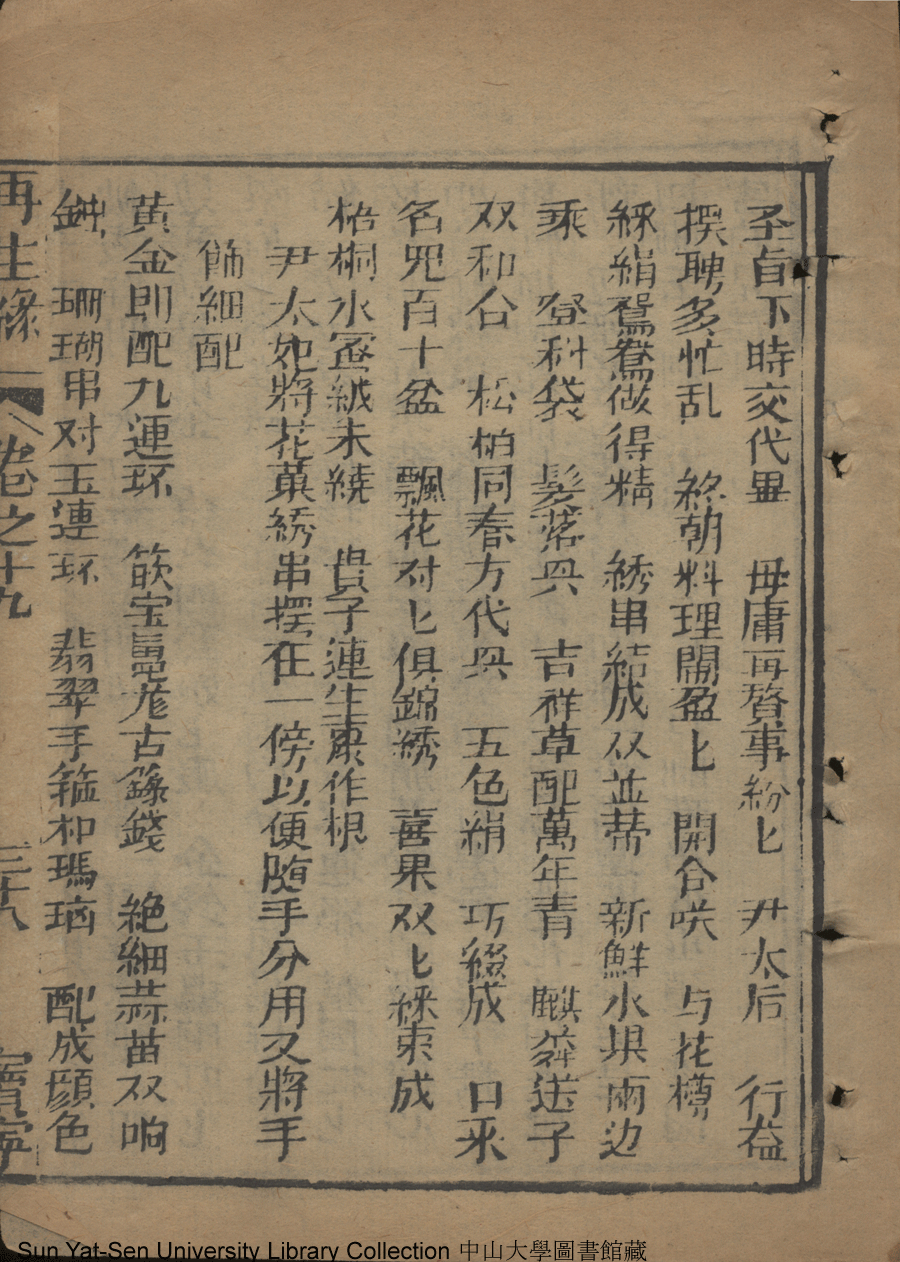 圣旨下時交代畢 毋庸再贅事紛匕 尹太后 行益
撰聘多忙乱 終朝料理鬧盈匕 開合咲 与花樽
綵絹鴛鴦做得精 綉串結成双並蒂 新鮮水果兩边
乘 登科袋 髮落㒷 吉祥草配萬年青 麒麟送子
双和合 松柏同春万代㒷 五色絹 巧綴成 口采
名児百十盆 飄花对匕俱錦綉 喜果双匕綵束成
梧桐水蜜絨未繞 貴子連生棗作根
尹太妃將花菓綉串擺在一傍以便随手分用又將手
飾細配
黃金即配九連环 筬宝 古錢 絶細蒜苗双响
鈡 珊瑚串对玉連环 翡翠手箍和瑪瑙 配成顔色
再生緣 卷之十九 三十八 寶寧
Sun Yat-Sen University Library Collection 中山大學圖書館藏